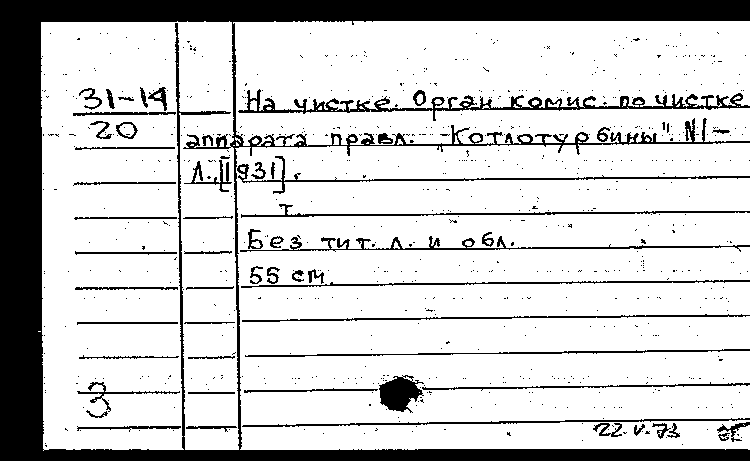 31-14 На чистке. Орган комис. по чистке
20 аппарата правл. "Котлотурбины". №1-
Л., [1931].
т.
Без тит. л. и обл.
55 см.
3
22.V.73